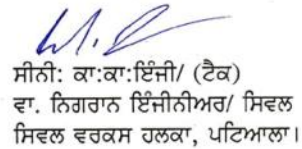 ਸੀਨੀ: ਕਾ:ਕਾ:ਇੰਜੀ/ (ਟੈਕ)
ਵਾ. ਨਿਗਰਾਨ ਇੰਜੀਨੀਅਰ/ ਸਿਵਲ
ਸਿਵਲ ਵਰਕਸ ਹਲਕਾ, ਪਟਿਆਲਾ।